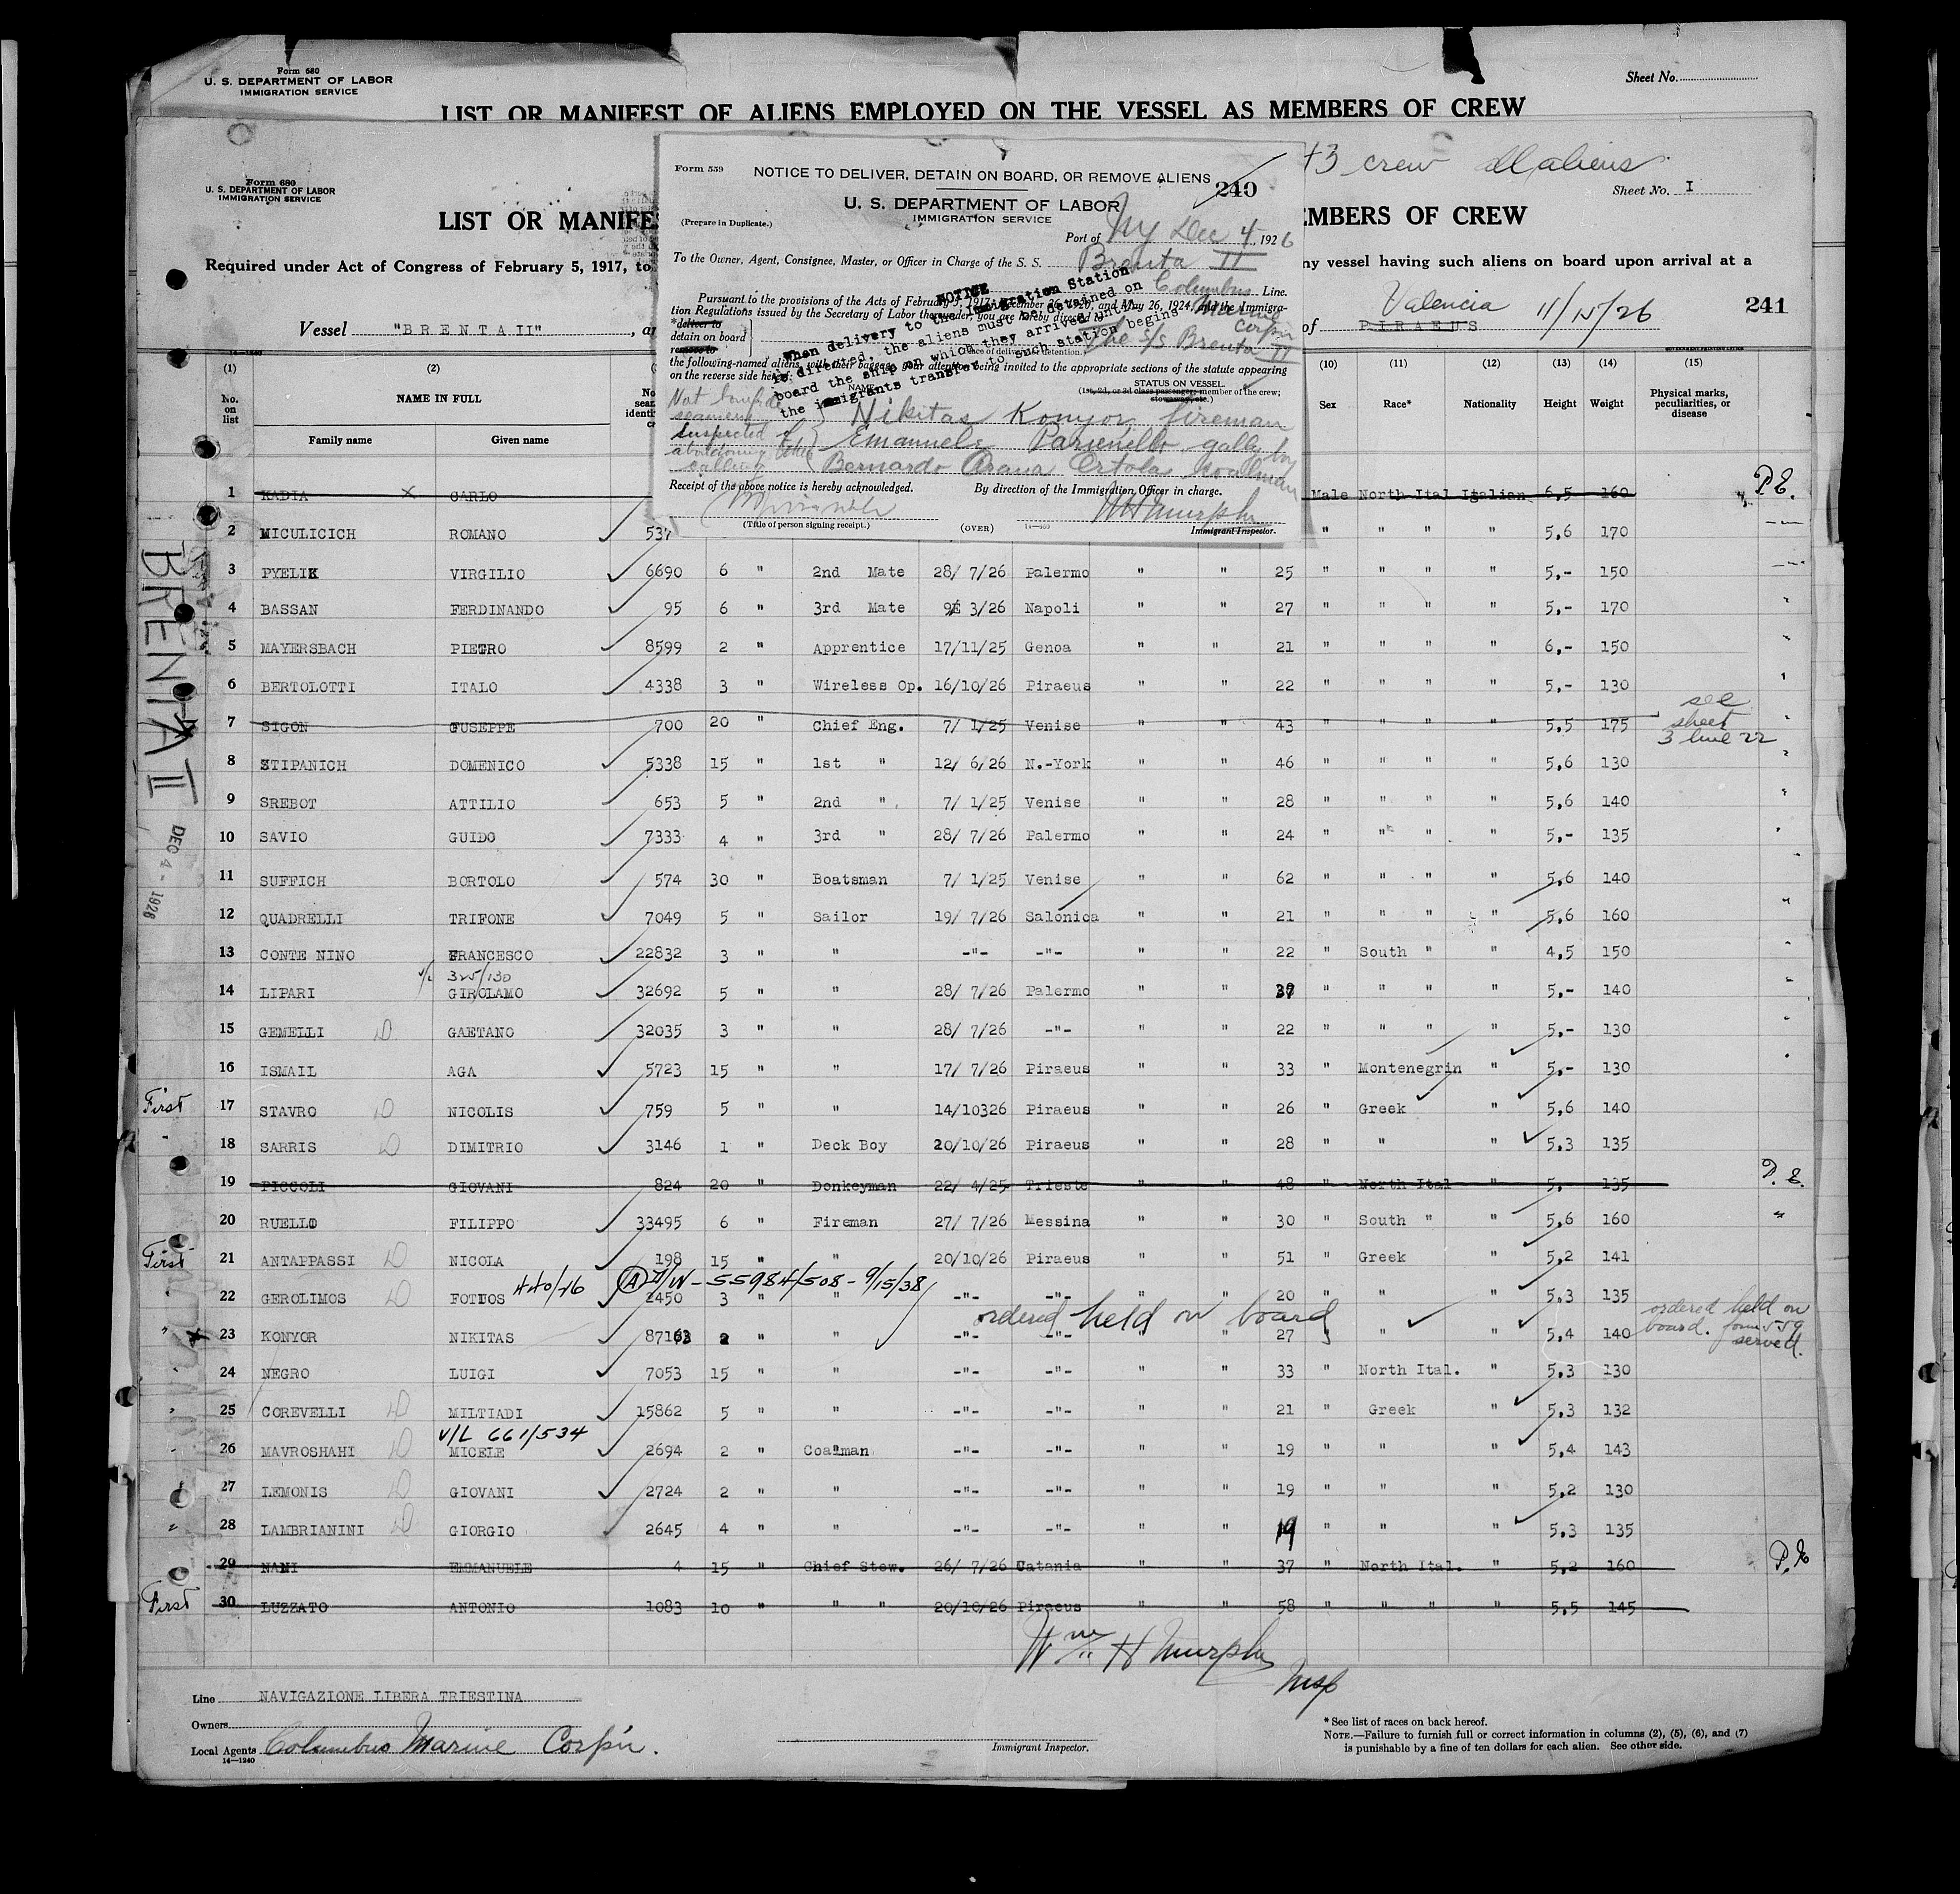 Form 680
U. S. DEPARTMENT OF LABOR
IMMIGRATION SERVICE
Sheet No.
LIST OR MANIFEST OF ALIENS EMPLOYED ON THE VESSEL AS MEMBERS OF CREW
Form 680
U. S. DEPARTMENT OF LABOR
IMMIGRATION SERVICE
43 crew All aliens
Sheet No. I
LIST OR MANIFE
EMBERS OF CREW
Required under Act of Congress of February 5, 1917, to
ny vessel having such aliens on board upon arrival at a
Vessel "BRENTA II", a
of PIRAEUS Valencia 11/15/26
241
Form 559
NOTICE TO DELIVER, DETAIN ON BOARD, OR REMOVE ALIENS
240
U. S. DEPARTMENT OF LABOR
IMMIGRATION SERVICE
(Prepare in Duplicate.)
Port of NY Dec 4, 1926
To the Owner, Agent, Consignee, Master, or Officer in Charge of the S. S. Brenta II
Columbus Marine Corp'n Line.
Pursuant to the provisions of the Acts of February 5, 1917, December 26, 1920, and May 26, 1924, and the Immigra-
tion Regulations issued by the Secretary of Labor thereunder, you are hereby directed
*deliver to
detain on board
remove to
The s/s Brenta II
the following-named aliens, with their baggage, your attention being invited to the appropriate sections of the statute appearing
on the reverse side hereof:
NOTICE
When delivery to the Immigration Station
is directed, the aliens must be detained on
board the ship on which they arrived until
the immigrants transfer to such station begins
NAME
STATUS ON VESSEL.
(1st, 2d, or 3d class passenger; member of the crew; stowaway, etc.)
Not bonafide seamen suspected of abandoning calling
Nikitas Konyor fireman
Emanuele Parienello gally boy
Bernardo Arana Ortola koalman
Receipt of the above notice is hereby acknowledged.
By direction of the Immigration Officer in charge.
(Title of person signing receipt.)
(OVER)
WH Murphy
Immigrant Inspector.
(1) (2) (10) (11) (12) (13) (14) (15)
No. on list
NAME IN FULL
Family name Given name
Sex Race* Nationality Height Weight Physical marks, peculiarities, or disease
1 KADIA x CARLO Male North Ital Igalian 6,5 160 P.E.
2 MICULICICH ROMANO 537 " " " " 5,6 170
3 PYELIK VIRGILIO 6690 6 " 2nd Mate 28/ 7/26 Palermo " " 25 " " " " 5,- 150
4 BASSAN FERDINANDO 95 6 " 3rd Mate 9 3/26 Napoli " " 27 " " " " 5,- 170
5 MAYERSBACH PIETRO 8599 2 " Apprentice 17/11/25 Genoa " " 21 " " " " 6,- 150
6 BERTOLOTTI ITALO 4338 3 " Wireless Op. 16/10/26 Piraeus " " 22 " " " " 5,- 130
7 SIGON GUSEPPE 700 20 " Chief Eng. 7/ 1/25 Venise " " 43 " " " " 5,5 175 see sheet 3 line 22
8 STIPANICH DOMENICO 5338 15 " 1st " 12/ 6/26 N.-York " " 46 " " " " 5,6 130
9 SREBOT ATTILIO 653 5 " 2nd " 7/ 1/25 Venise " " 28 " " " " 5,6 140
10 SAVIO GUIDO 7333 4 " 3rd " 28/ 7/26 Palermo " " 24 " " " " 5,- 135
11 SUFFICH BORTOLO 574 30 " Boatsman 7/ 1/25 Venise " " 62 " " " " 5,6 140
12 QUADRELLI TRIFONE 7049 5 " Sailor 19/ 7/26 Salonica " " 21 " " " " 5,6 160
13 CONTE NINO FRANCESCO 22832 3 " " -"- -"- " " 22 " South " " 4,5 150
v/L 325/130
14 LIPARI GIROLAMO 32692 5 " " 28/ 7/26 Palermo " " " " " " 5,- 140
15 GEMELLI D GAETANO 32035 3 " " 28/ 7/26 -"- " " 22 " " " " 5,- 130
16 ISMAIL AGA 5723 15 " " 17/ 7/26 Piraeus " " 33 " Montenegrin " 5,- 130
First 17 STAVRO D NICOLIS 759 5 " " 14/10326 Piraeus " " 26 " Greek " 5,6 140
" 18 SARRIS D DIMITRIO 3146 1 " Deck Boy 20/10/26 Piraeus " " 28 " " " 5,3 135
19 PICCOLI GIOVANI 824 20 " Donkeyman 22/ 4/25 Trieste " " 48 " North Ital " 5, 135 P.E.
20 RUELLO FILIPPO 33495 6 " Fireman 27/ 7/26 Messina " " 30 " South " " 5,6 160
First 21 ANTAPPASSI D NICOLA 198 15 " " 20/10/26 Piraeus " " 51 " Greek " 5,2 141
440/46 (A) V/W - 55984/508 - 9/15/38
22 GEROLIMOS D FOTUOS 2450 3 " " -"- -"- " " 20 " " " 5,3 135
ordered held on board
" x 23 KONYOR NIKITAS 87163 2 " " -"- -"- " " 27 " " " 5,4 140 ordered held on board. form 559 served.
24 NEGRO LUIGI 7053 15 " " -"- -"- " " 33 " North Ital. " 5,3 130
" 25 COREVELLI D MILTIADI 15862 5 " " -"- -"- " " 21 " Greek " 5,3 132
V/L 661/534
" 26 MAVROSHAHI D MICELE 2694 2 " Coalman -"- -"- " " 19 " " " 5,4 143
" 27 LEMONIS D GIOVANI 2724 2 " " -"- -"- " " 19 " " " 5,2 130
" 28 LAMBRIANINI D GIORGIO 2645 4 " " -"- -"- " " 19 " " " 5,3 135
29 NANI EMMANUELE 4 15 " Chief Stew. 26/ 7/26 Catania " " 37 " North Ital. " 5,2 160 P.E
First 30 LUZZATO ANTONIO 1083 10 " " " 20/10/26 Piraeus " " 58 " " " " 5,5 145
BRENTA II
DEC 4 - 1926
Wm H Murphy
Insp
Line NAVIGAZIONE LIBERA TRIESTINA
Owners
Local Agents Columbus Marine Corp'n.
14-1240
Immigrant Inspector.
* See list of races on back hereof.
NOTE.—Failure to furnish full or correct information in columns (2), (5), (6), and (7)
is punishable by a fine of ten dollars for each alien. See other side.